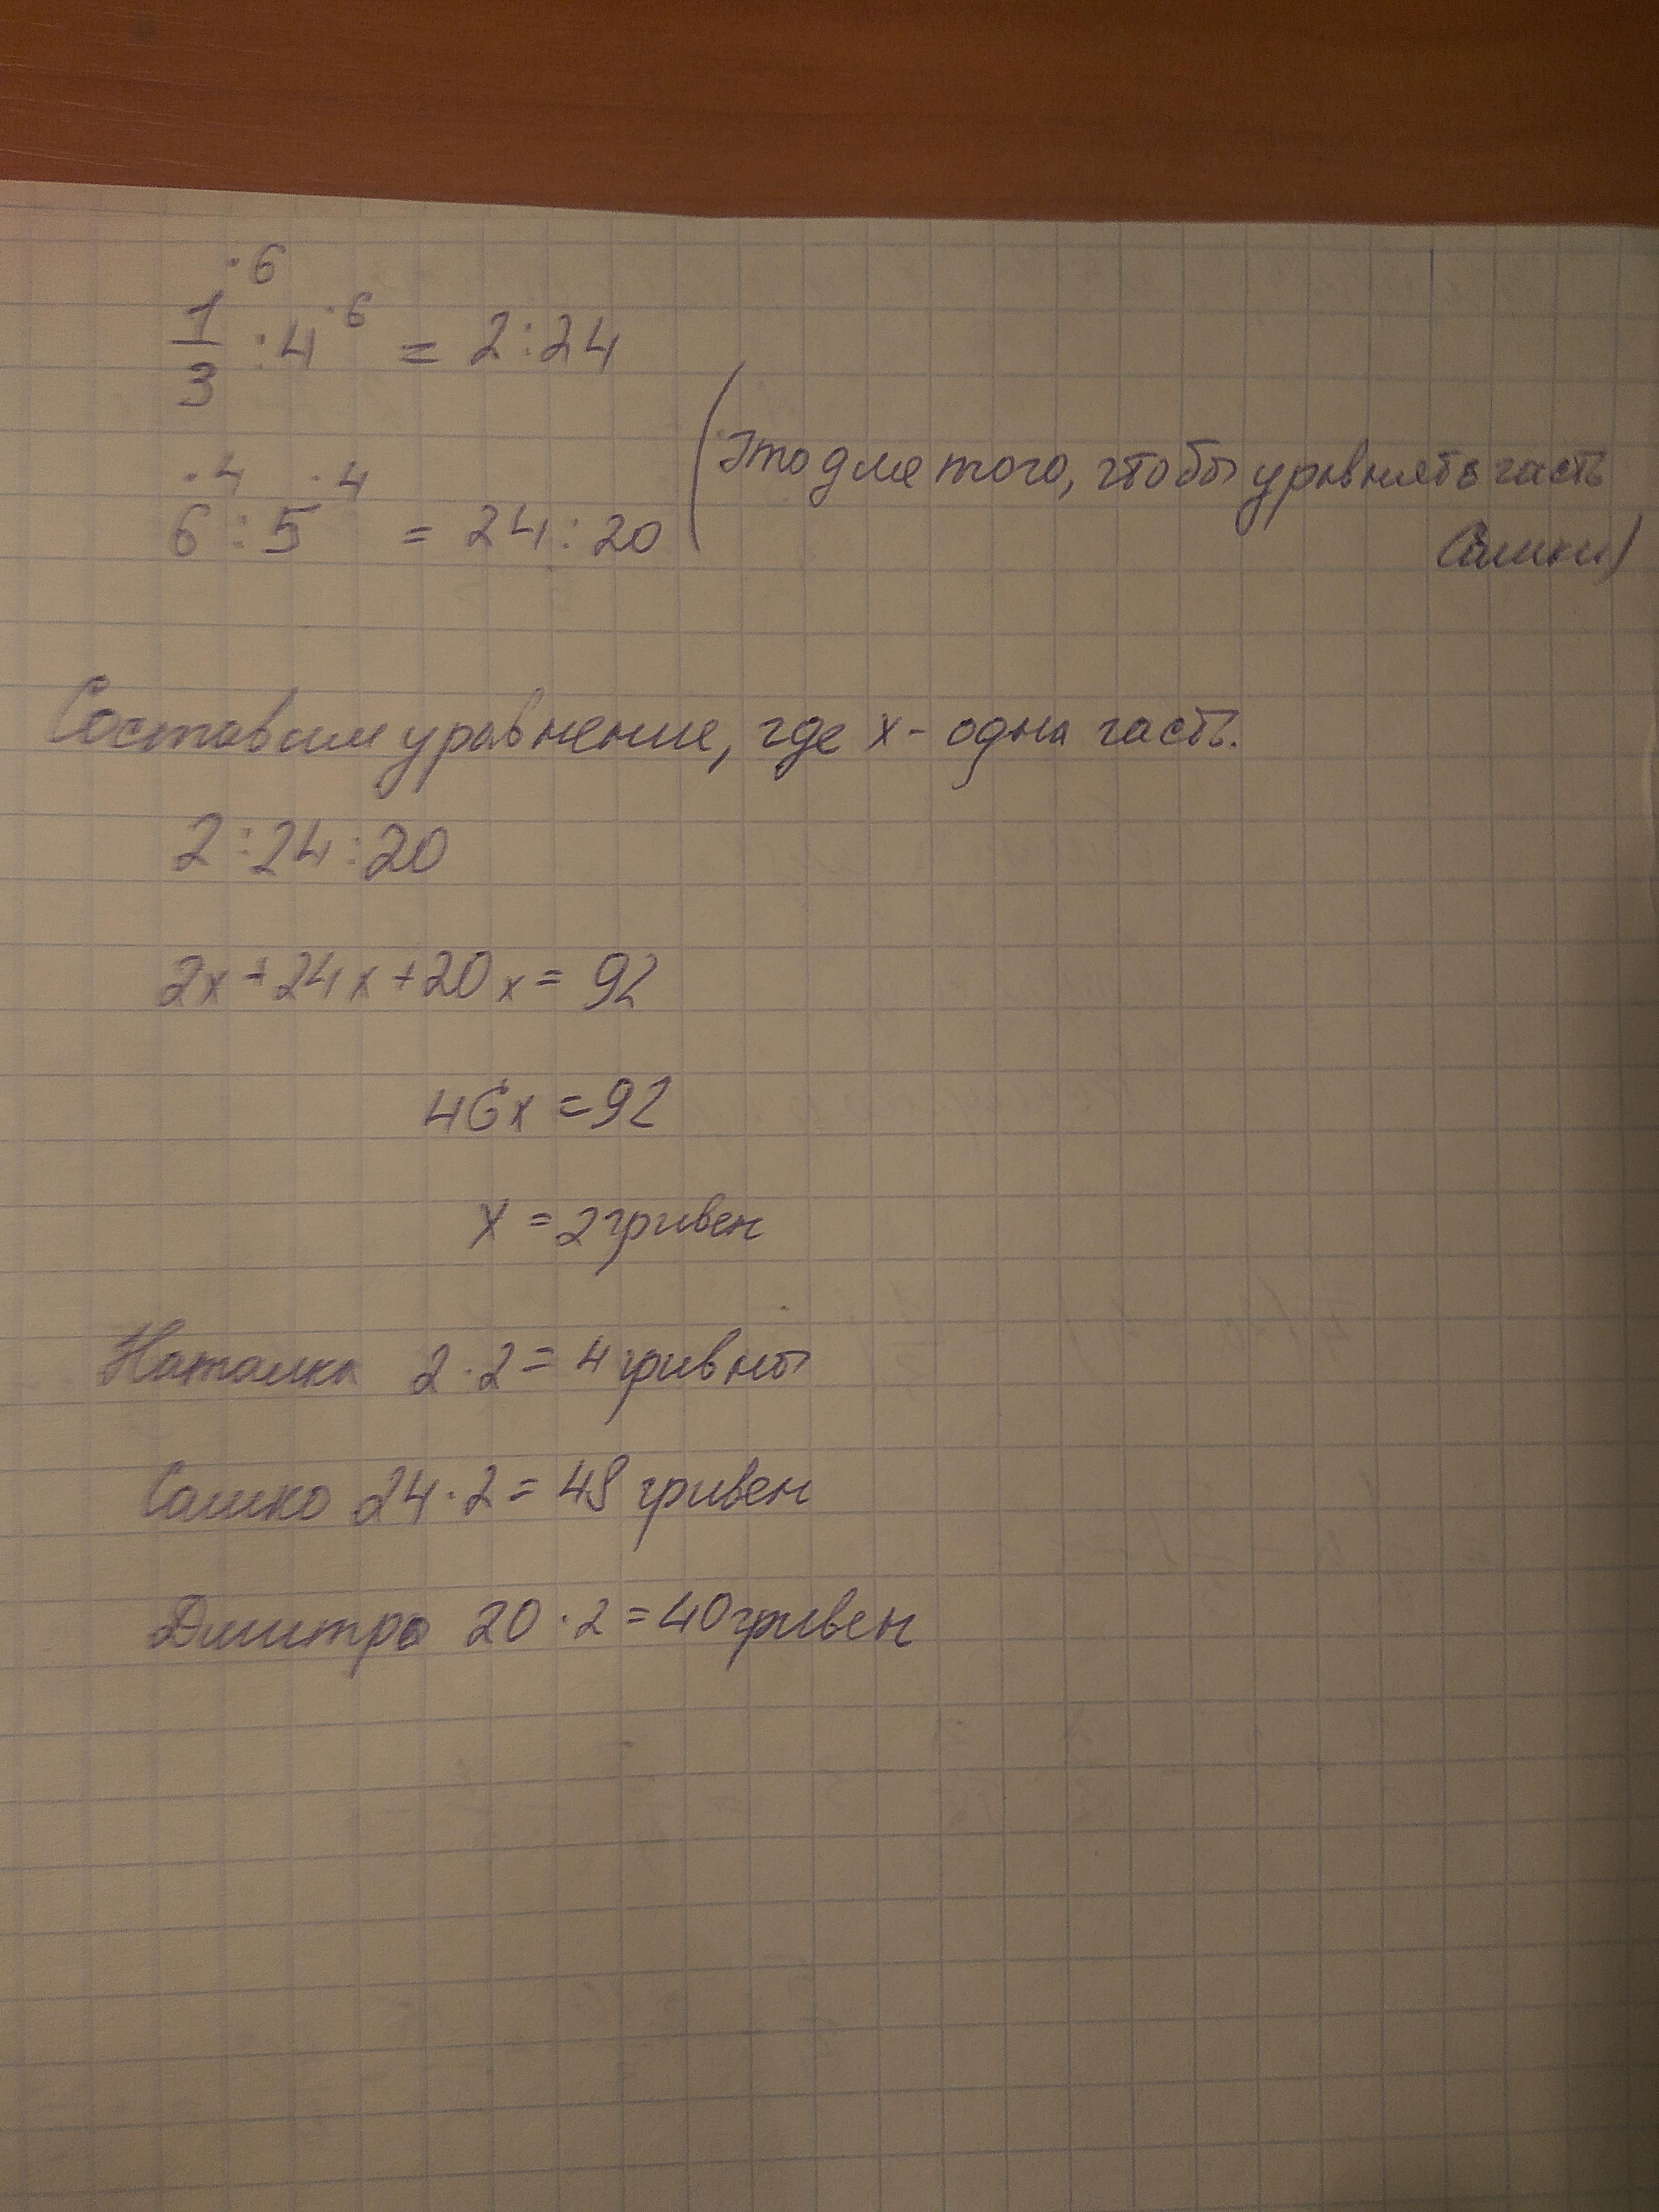 ·6
1/3 : 4 ·6 = 2:24
·4 ·4
6 : 5 = 24:20 (Это для того, чтобы уровнять часть
Сашки)
Составим уравнение, где x - одна часть.
2:24:20
2x+24x+20x=92
46x=92
x=2гривен
Наталка 2·2=4гривны
Сашко 24·2=48 гривен
Дмитро 20·2=40гривен